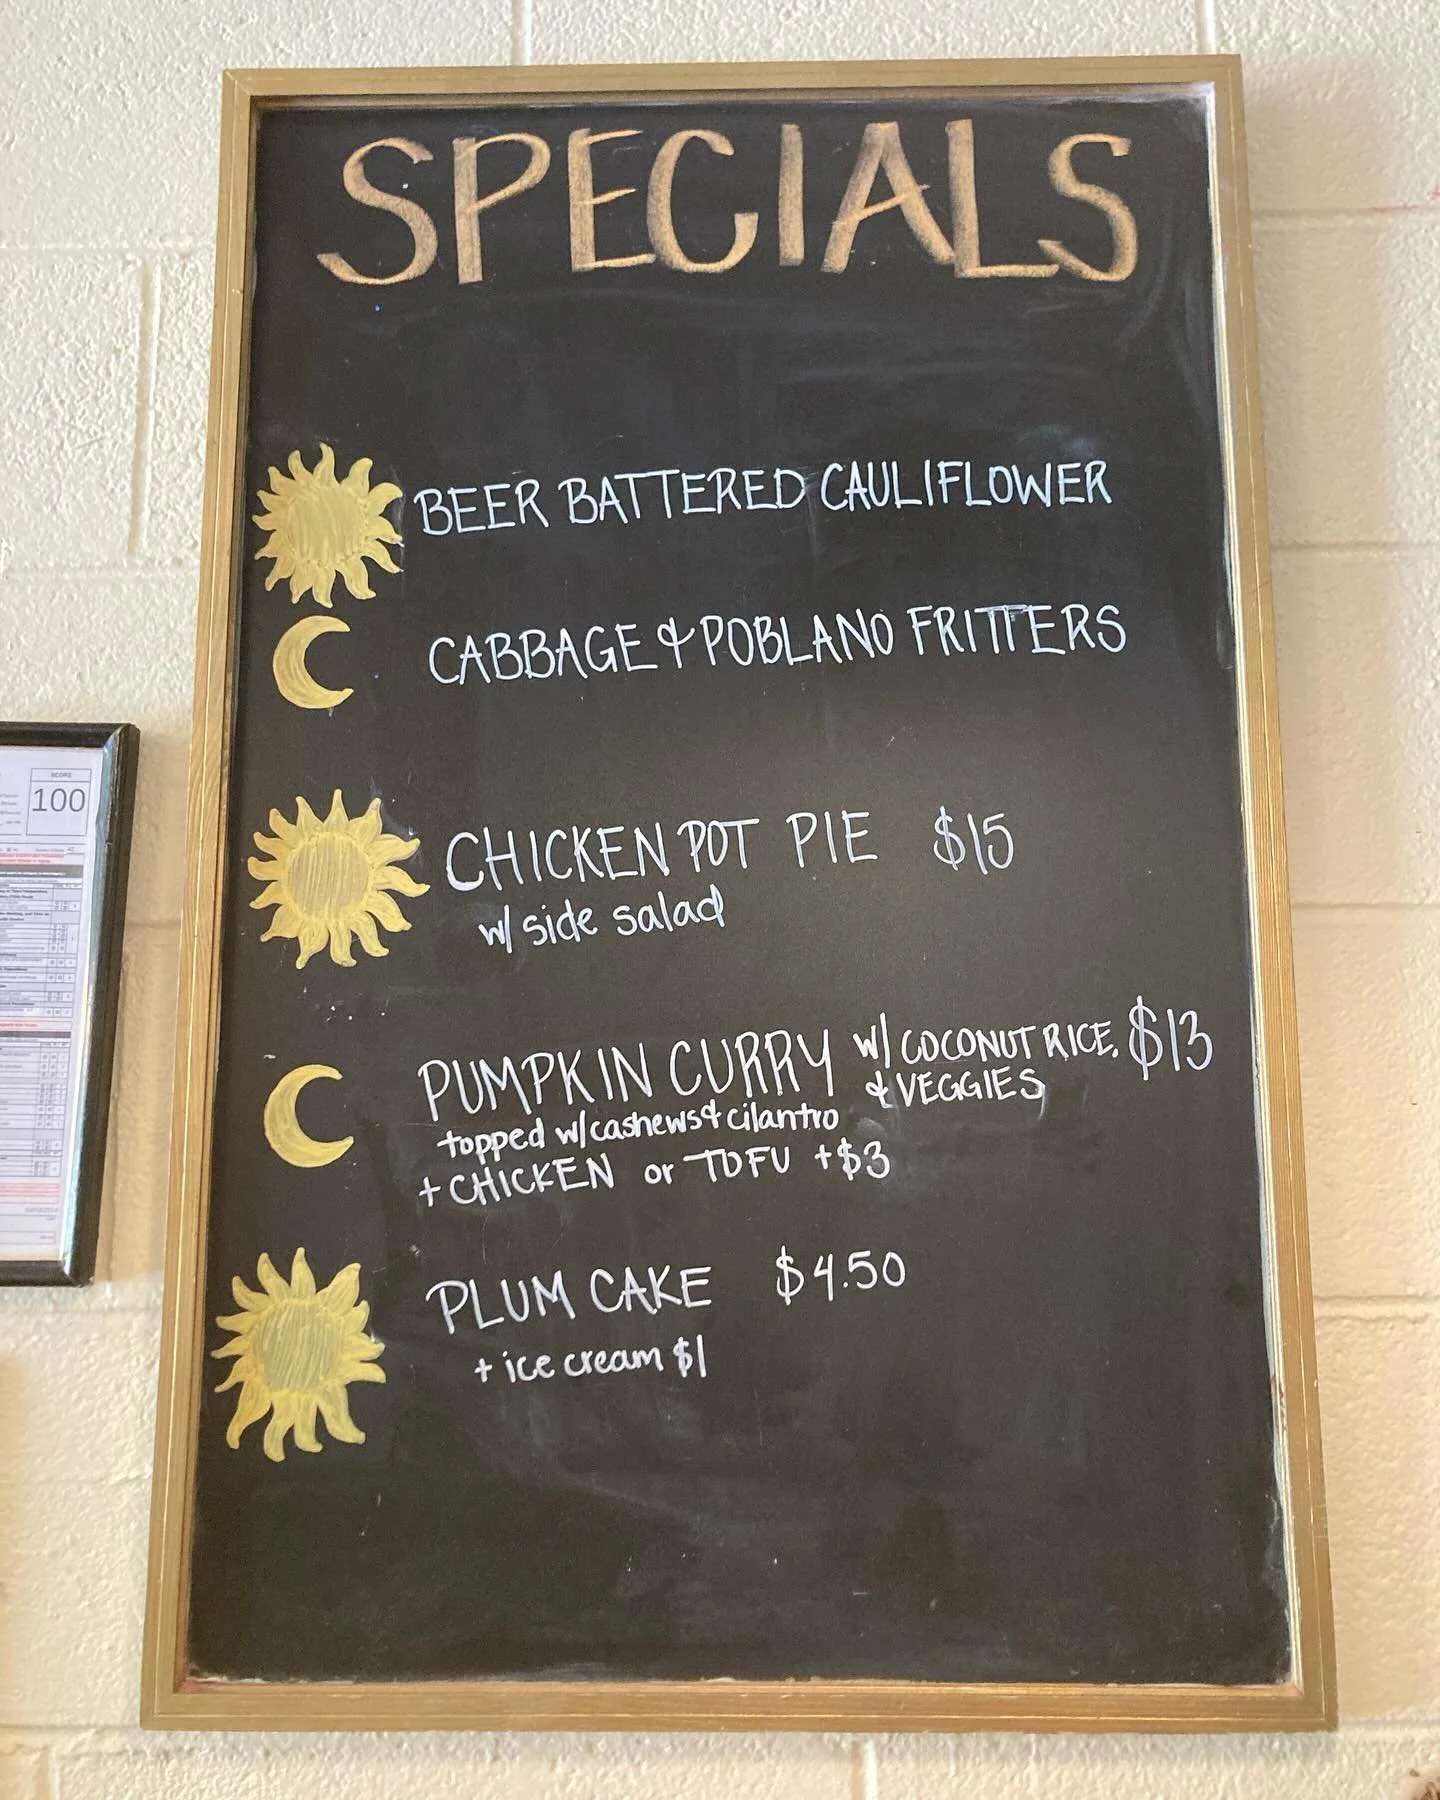 SPECIALS
BEER BATTERED CAULIFLOWER
CABBAGE & POBLANO FRITTERS
CHICKEN POT PIE $15
w/ side salad
PUMPKIN CURRY w/ COCONUT RICE, $13
& VEGGIES
topped w/cashews & cilantro
+ CHICKEN or TOFU +$3
PLUM CAKE $4.50
+ ice cream $1
SCORE
100